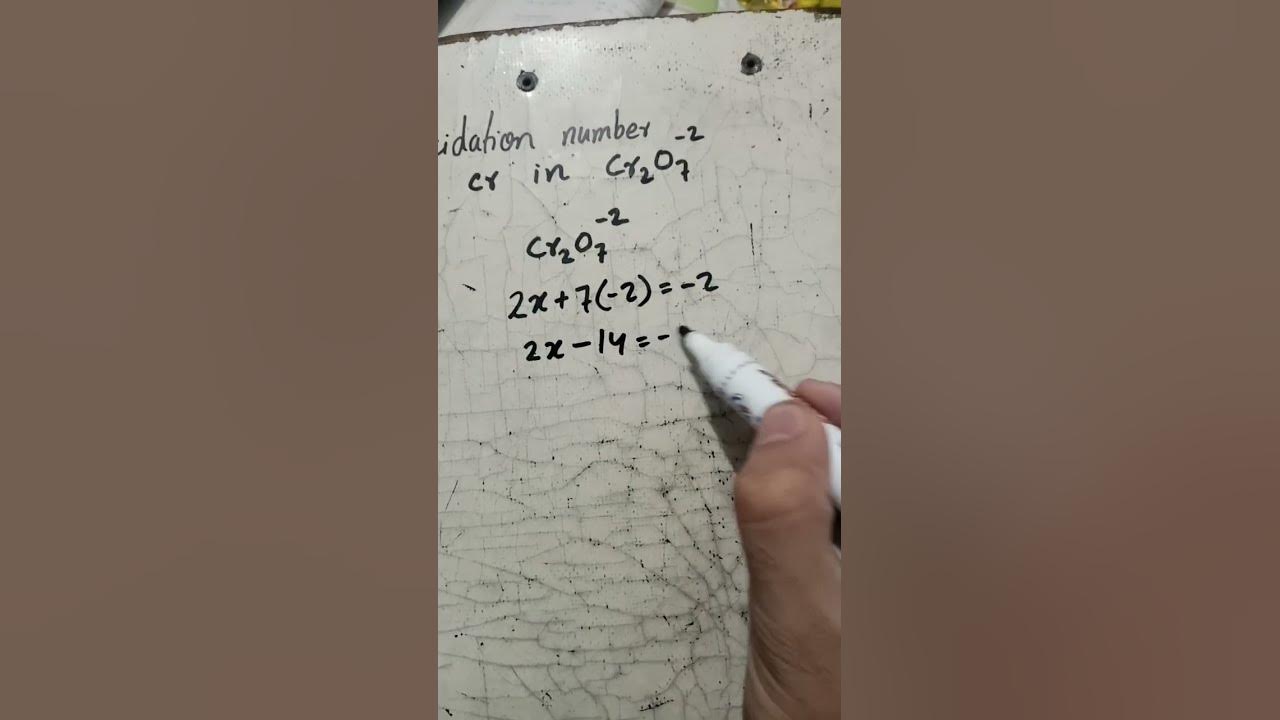 idation number
cr in Cr₂O₇⁻²
Cr₂O₇⁻²
2x+7(-2)=-2
2x-14=-